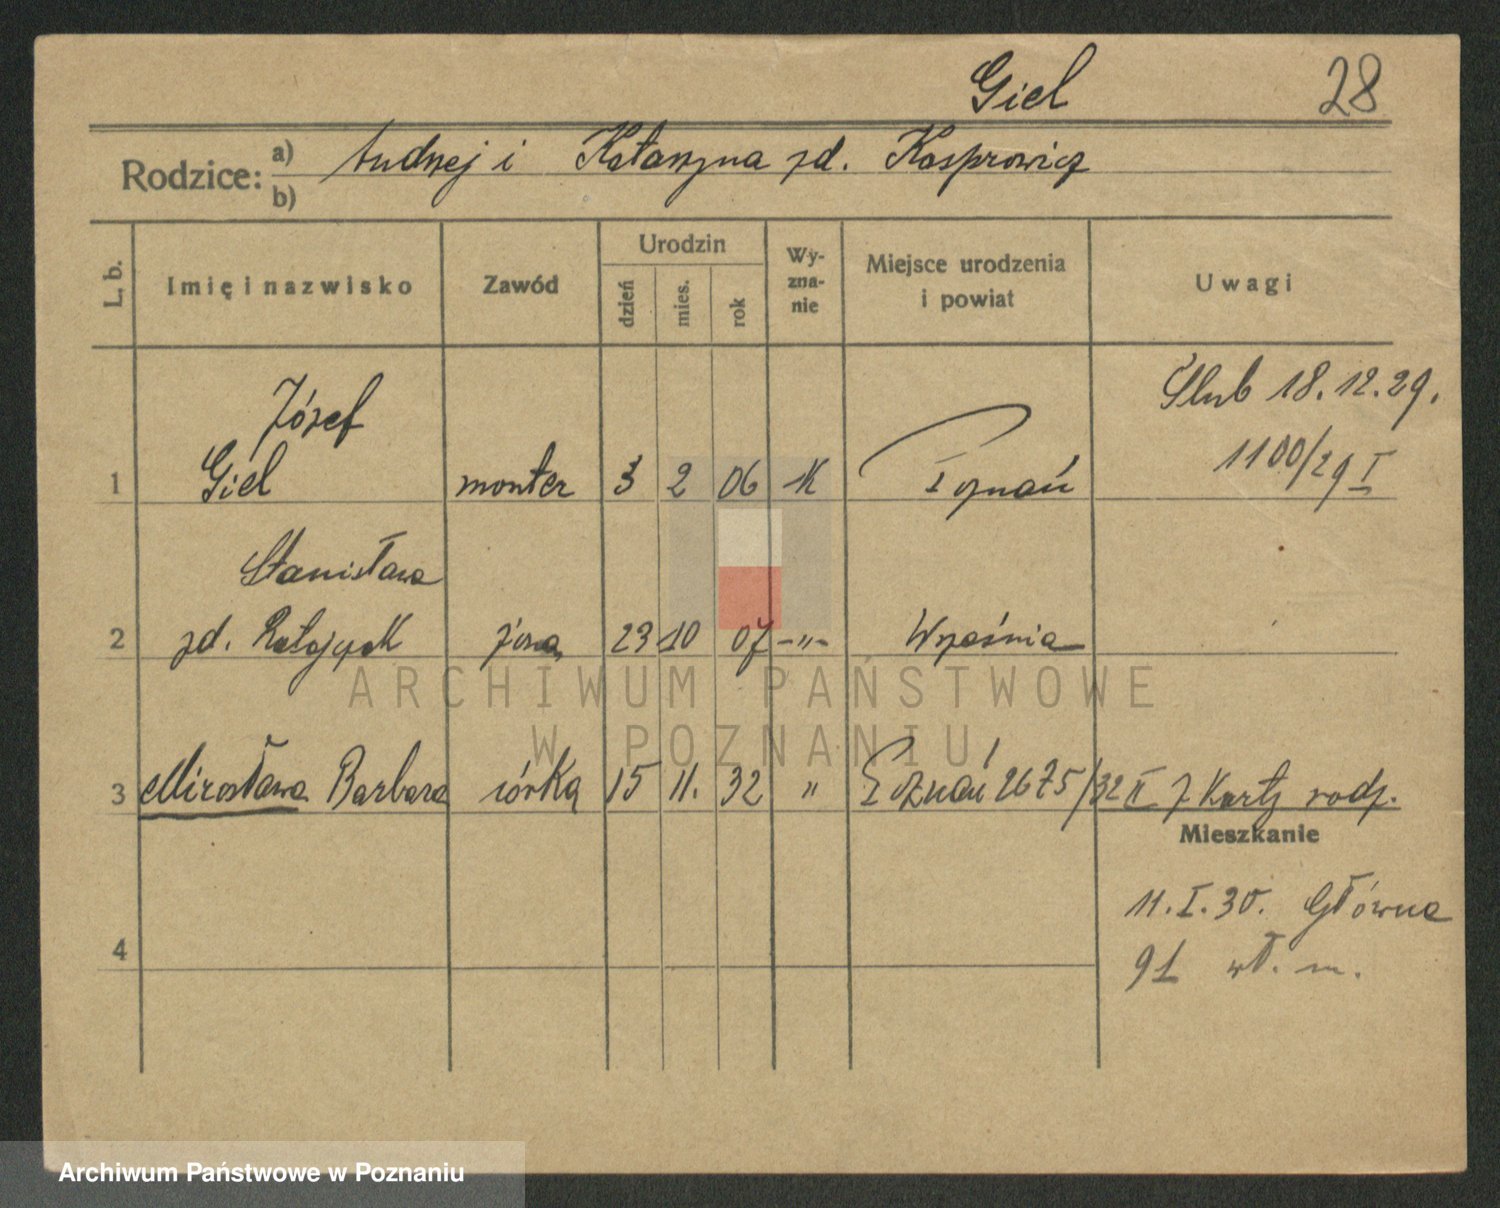 Giel 28
Rodzice: a) Andrzej i Katarzyna zd. Kasprowicz
b)
L. b. Imię i nazwisko Zawód Urodzin dzień mies. rok Wyznanie Miejsce urodzenia i powiat Uwagi
Józef Ślub 18.12.29.
1 Giel monter 3 2 06 K Poznań 1100/29 I
Stanisława
2 zd. Ratajczak żona 23 10 07 -"- Września
3 Mirosława Barbara córka 15 11. 32 " Poznań 2675/32 II z Karty rodz.
Mieszkanie
11.I.30. Główna
4 91 wł. m.
ARCHIWUM PAŃSTWOWE
W POZNANIU
Archiwum Państwowe w Poznaniu